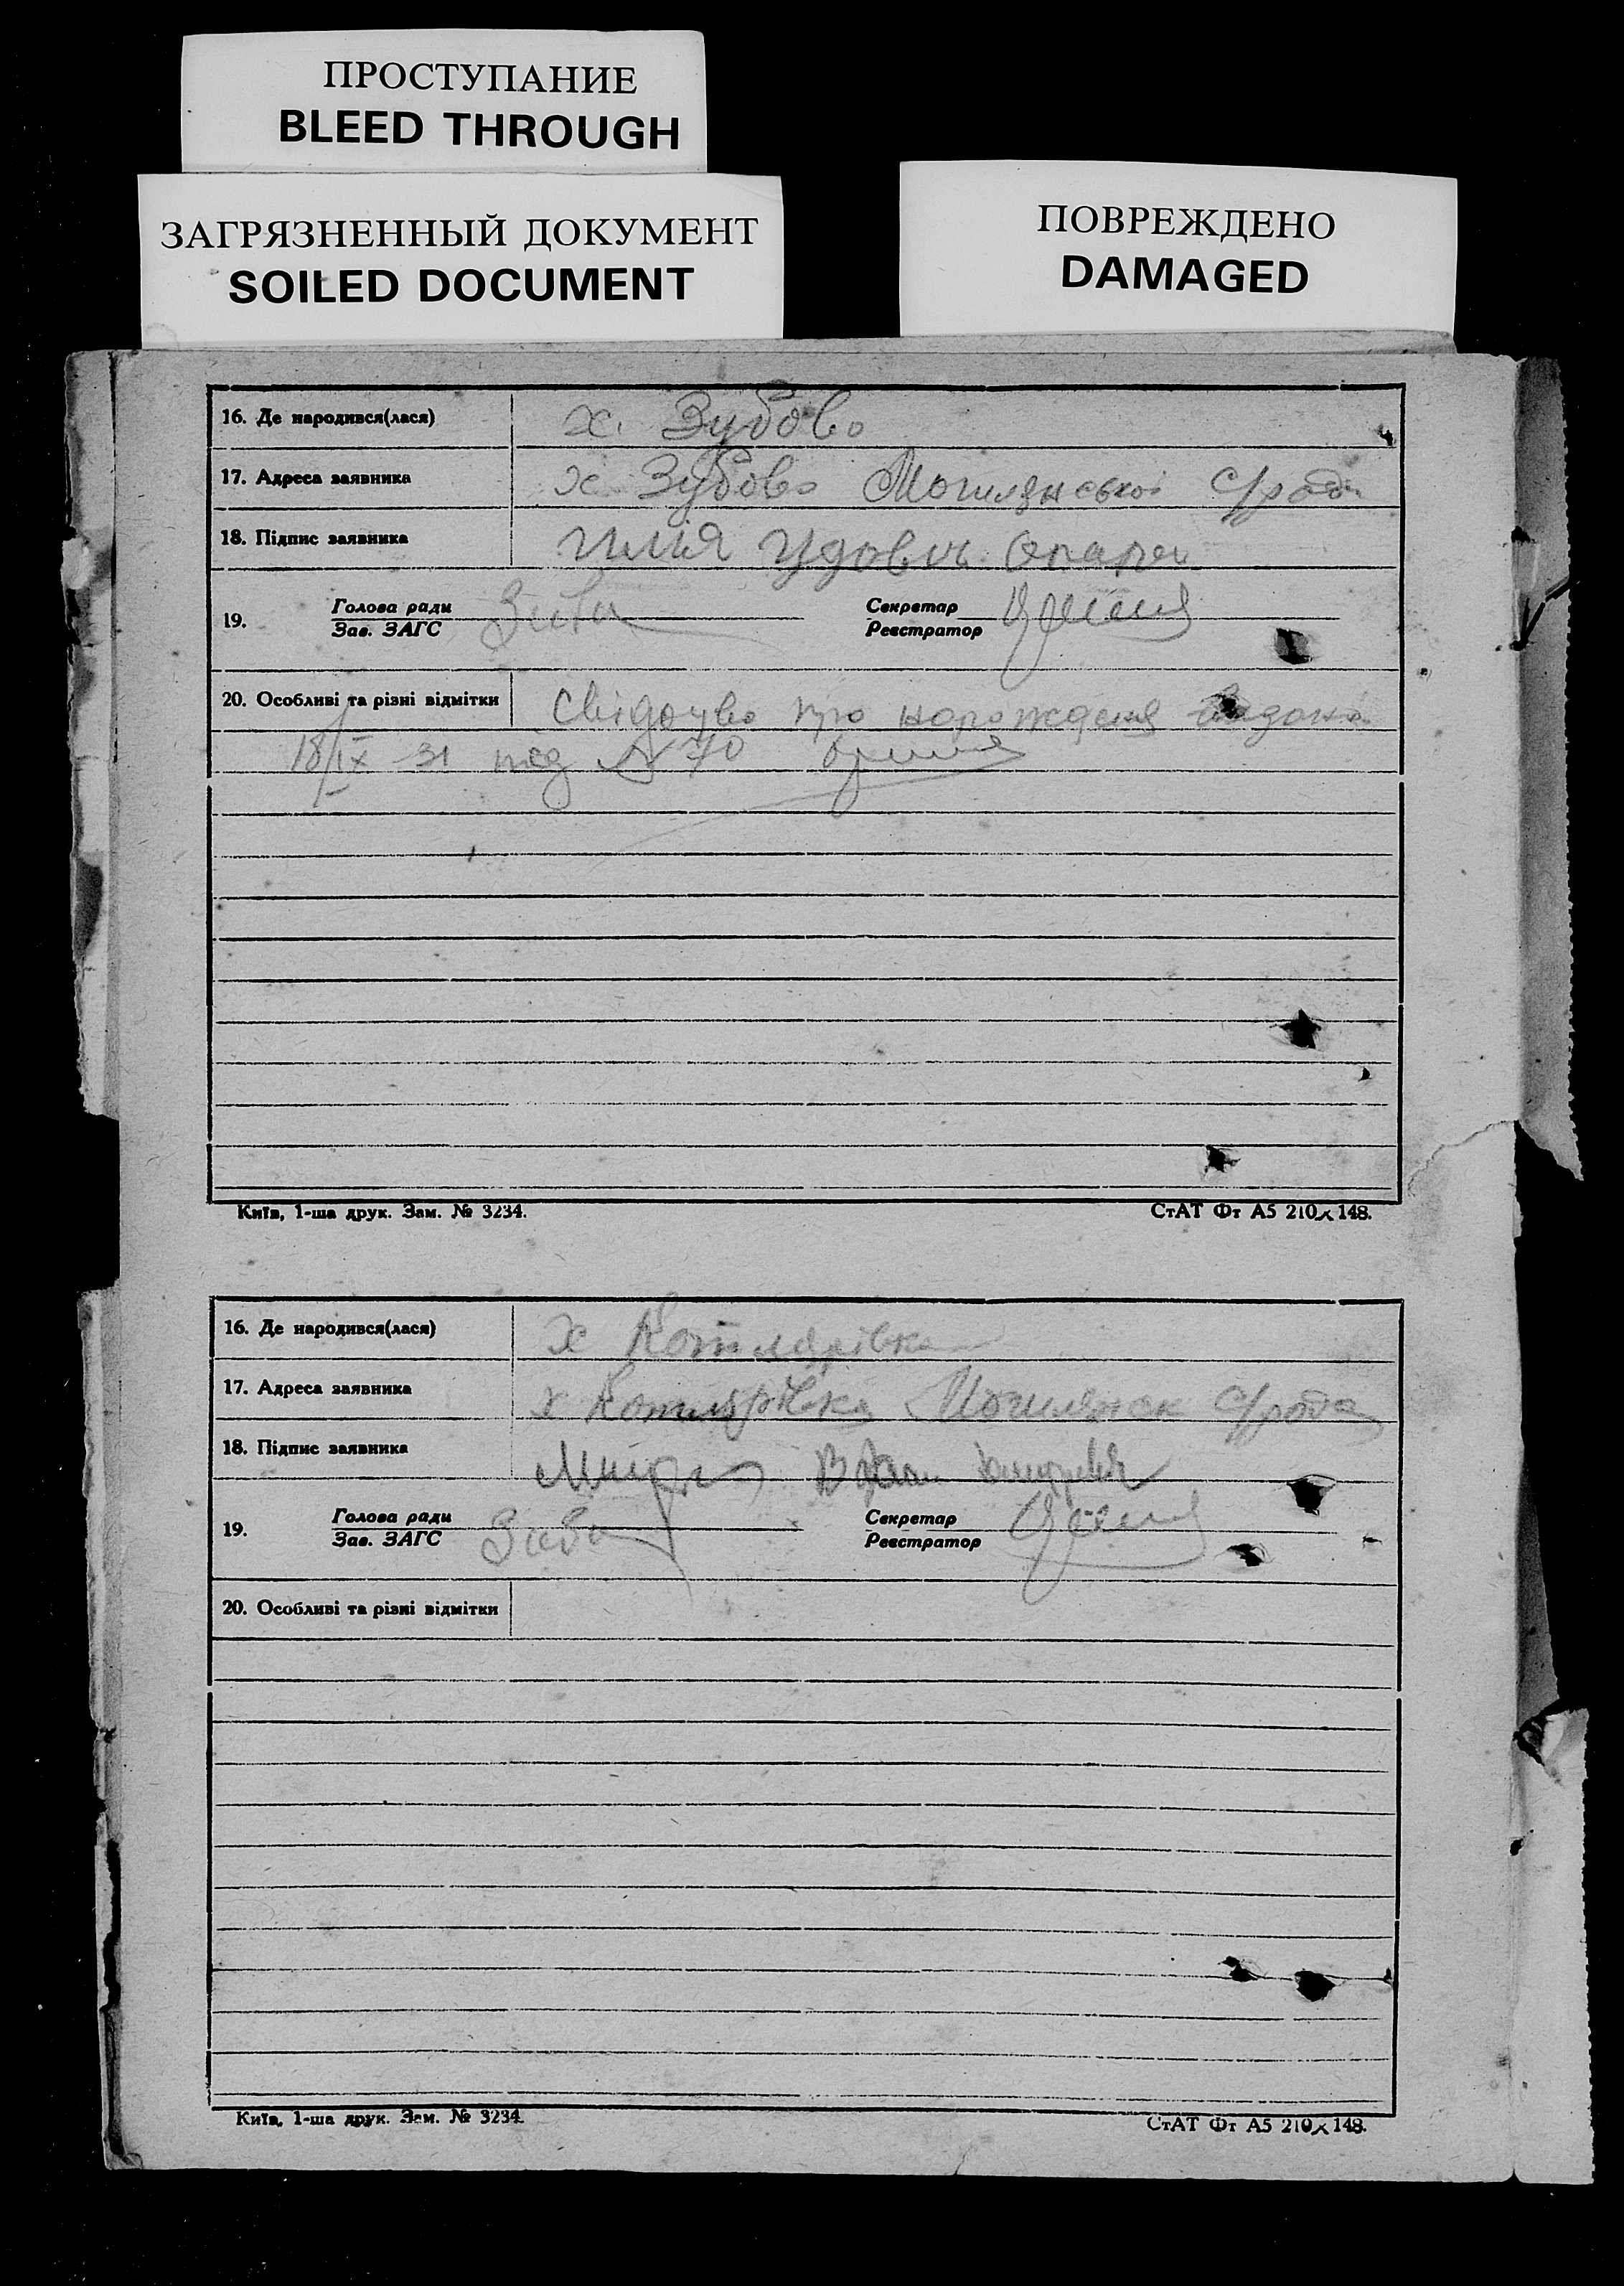 ПРОСТУПАНИЕ
BLEED THROUGH
ЗАГРЯЗНЕННЫЙ ДОКУМЕНТ
SOILED DOCUMENT
ПОВРЕЖДЕНО
DAMAGED
16. Де народився(лася) х. Зубово
17. Адреса заявника х Зубово Могилянської с/ради
18. Підпис заявника
19. Голова ради
Зав. ЗАГС
Секретар
Реєстратор
20. Особливі та різні відмітки про нарождення
18/IX 31 під № 70
Київ, 1-ша друк. Зам. № 3234. СтАТ Фт А5 210×148.
16. Де народився(лася) х Котлярівка
17. Адреса заявника х Котлярівка Могилянск с/рада
18. Підпис заявника
19. Голова ради
Зав. ЗАГС
Секретар
Реєстратор
20. Особливі та різні відмітки
Київ, 1-ша друк. Зам. № 3234. СтАТ Фт А5 210×148.